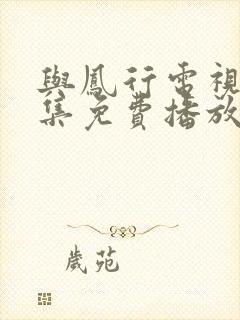 與鳳行電視
集免費播放
歲苑